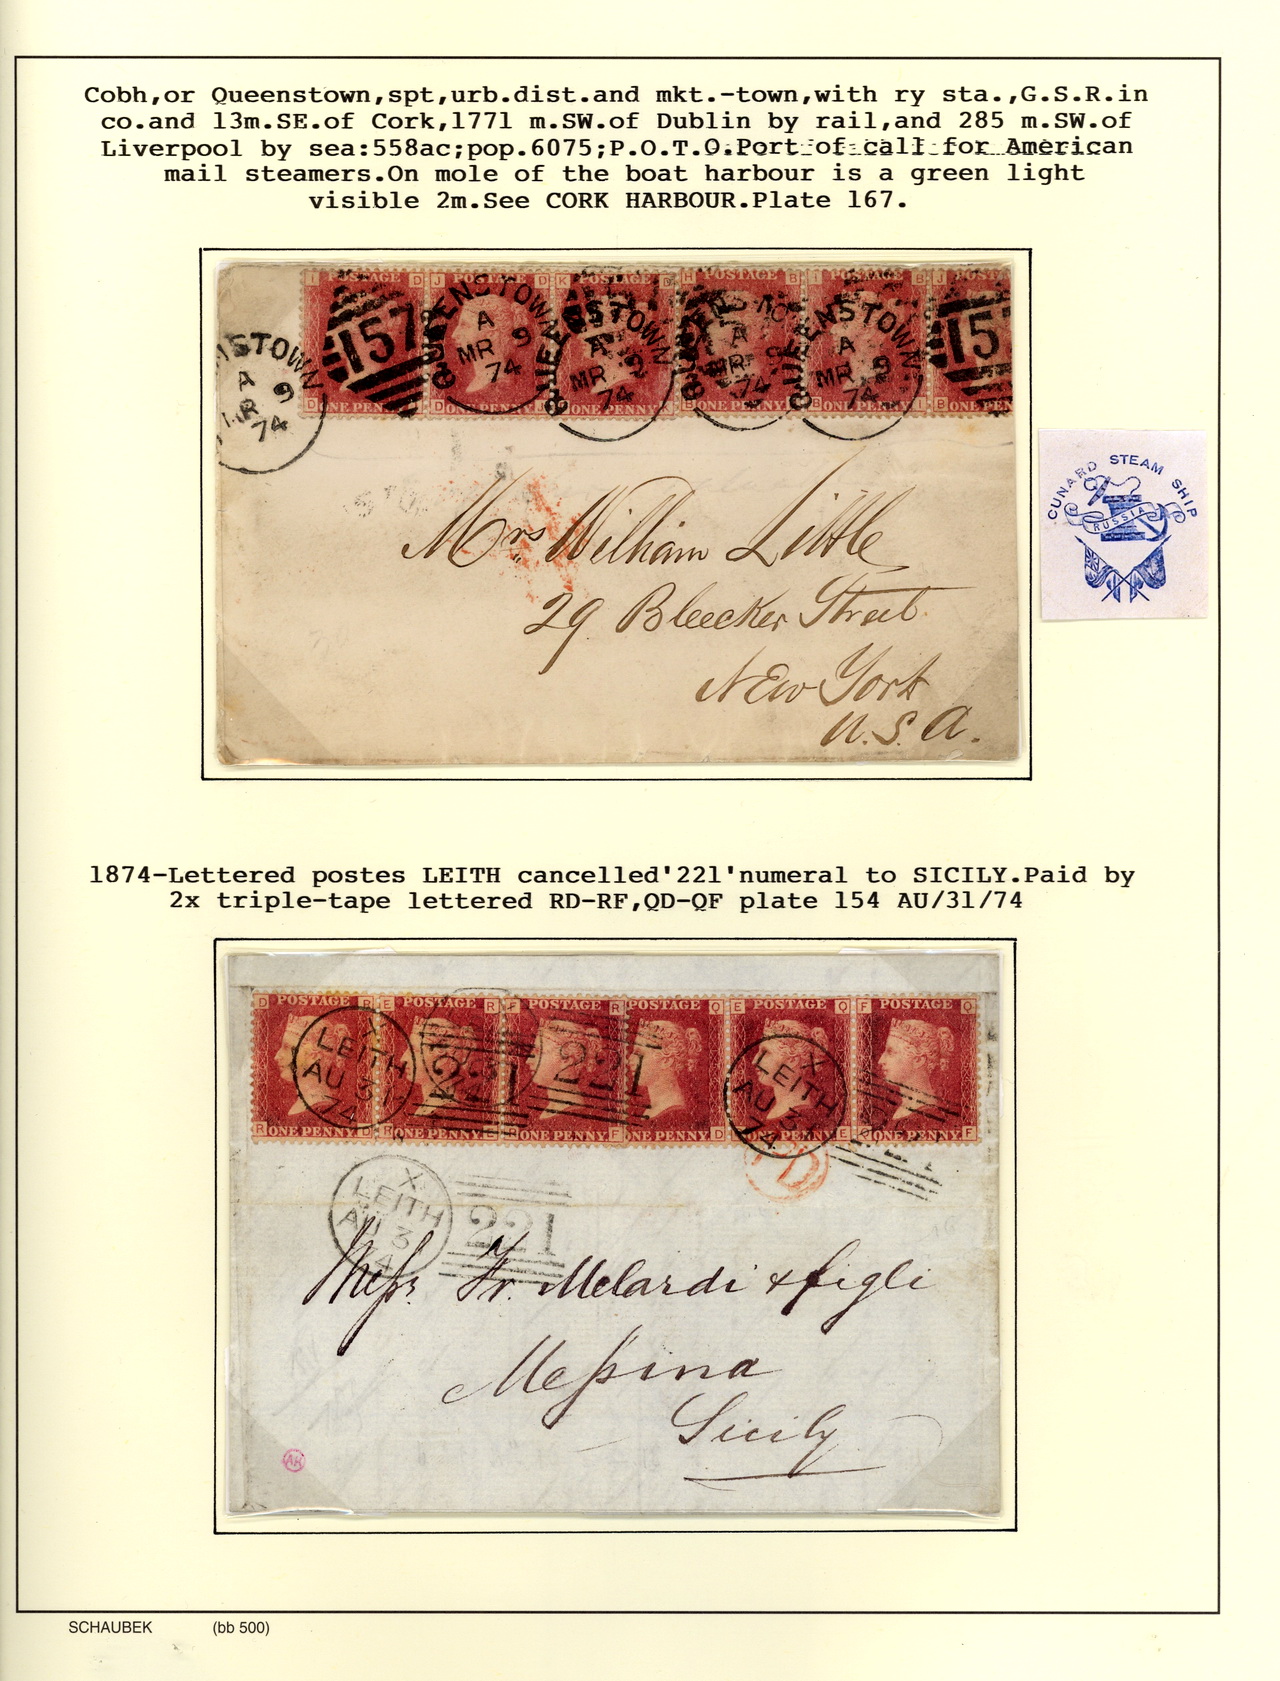 Cobh,or Queenstown,spt,urb.dist.and mkt.-town,with ry sta.,G.S.R.in
co.and 13m.SE.of Cork,1771 m.SW.of Dublin by rail,and 285 m.SW.of
Liverpool by sea:558ac;pop.6075;P.O.T.O.Port of call for American
mail steamers.On mole of the boat harbour is a green light
visible 2m.See CORK HARBOUR.Plate 167.
I POSTAGE D J POSTAGE D K D H POSTAGE B I B J
157 QUEENSTOWN QUEENSTOWN QUEENSTOWN QUEENSTOWN 15
A A A A A
MR 9 MR 9 MR 9 MR 9 MR 9
74 74 74 74 74
D ONE PENNY D ONE PENNY J ONE PENNY B ONE PENNY B ONE PENNY I B ONE PE
CUNARD STEAM SHIP
RUSSIA
Mrs William Little
29 Bleecker Street
New York
U.S.A.
1874-Lettered postes LEITH cancelled'221'numeral to SICILY.Paid by
2x triple-tape lettered RD-RF,QD-QF plate 154 AU/31/74
D POSTAGE R E POSTAGE R F POSTAGE R POSTAGE Q E POSTAGE Q F POSTAGE Q
X X
LEITH 221 221 LEITH
AU 31 AU 31
74 74
R ONE PENNY D R ONE PENNY E R ONE PENNY F ONE PENNY D ONE PENNY E Q ONE PENNY F
PD
X
LEITH 221
AU 3
74
Messrs Fr. Melardi & figli
Messina
Sicily
AR
SCHAUBEK (bb 500)